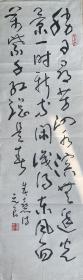 勝日尋芳泗水濱無邊光
景一時新等閒識得東風面
萬紫千紅總是春